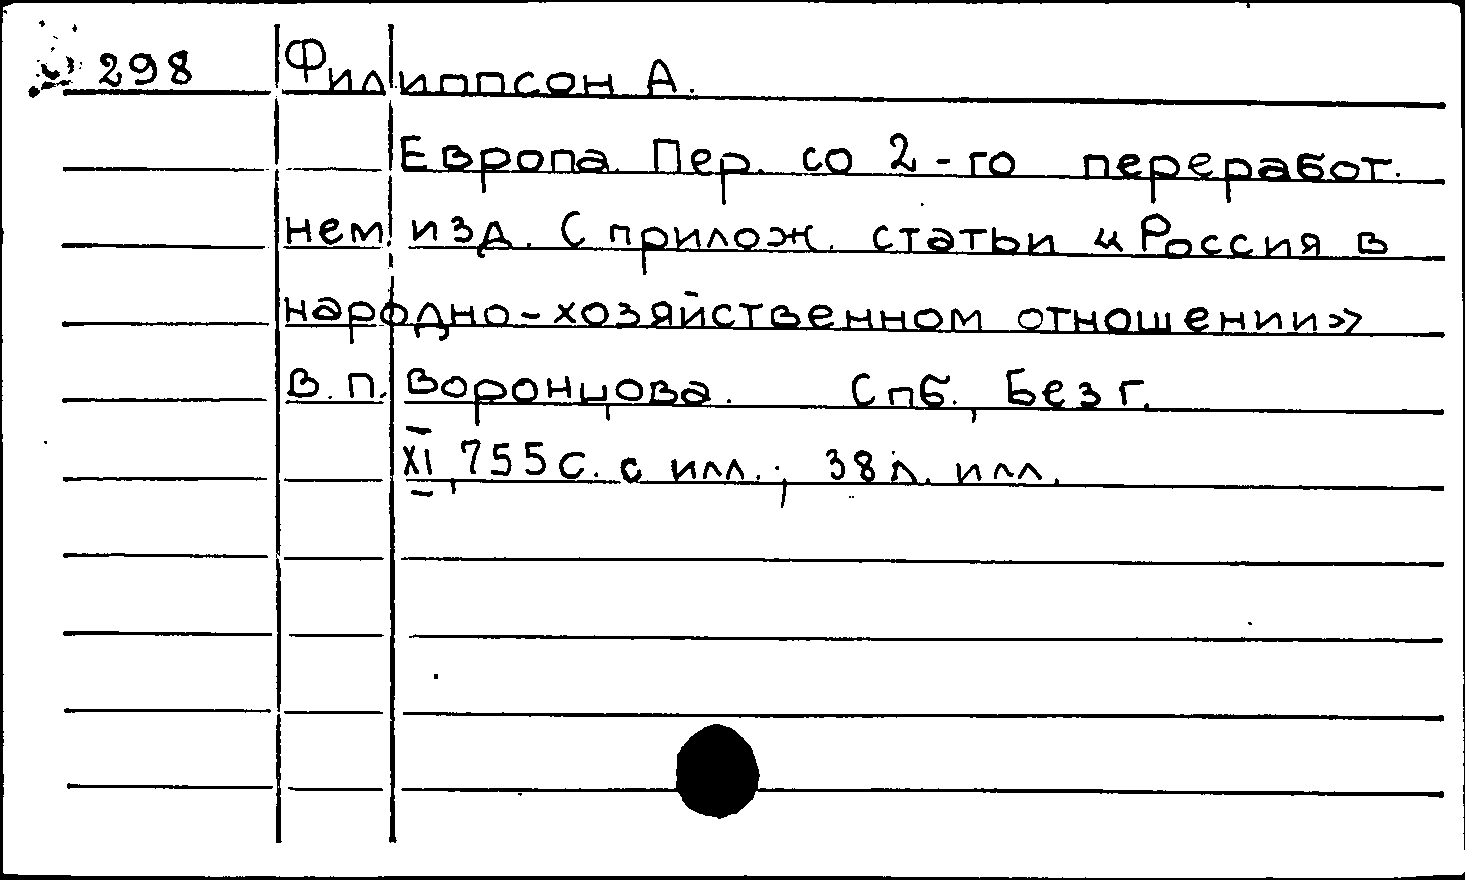 298 Филиппсон А.
Европа. Пер. со 2-го переработ.
нем. изд. С прилож. статьи «Россия в
народно-хозяйственном отношении»
В.П. Воронцова. Спб., Без г.
XI, 755 с. с илл.; 38 л. илл.